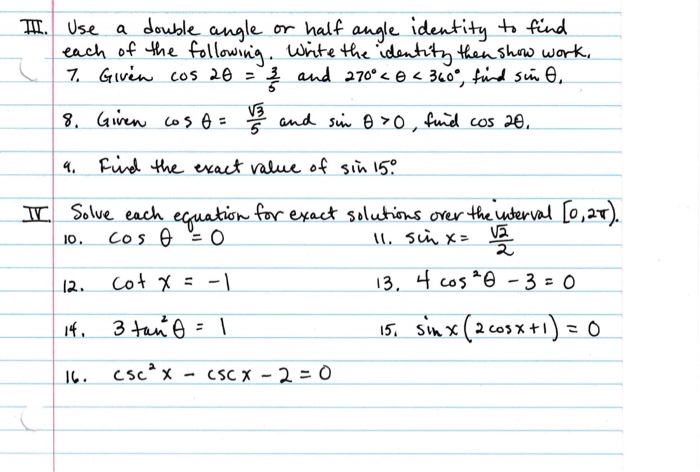 III. Use a double angle or half angle identity to find
each of the following. Write the identity then show work.
7. Given cos 2θ = 3/5 and 270° < θ < 360°, find sin θ.
8. Given cos θ = √3/5 and sin θ > 0, find cos 2θ.
9. Find the exact value of sin 15°.
IV. Solve each equation for exact solutions over the interval [0, 2π).
10. cos θ = 0 11. sin x = √2/2
12. cot x = -1 13. 4 cos²θ - 3 = 0
14. 3 tan²θ = 1 15. sin x (2 cos x + 1) = 0
16. csc² x - csc x - 2 = 0